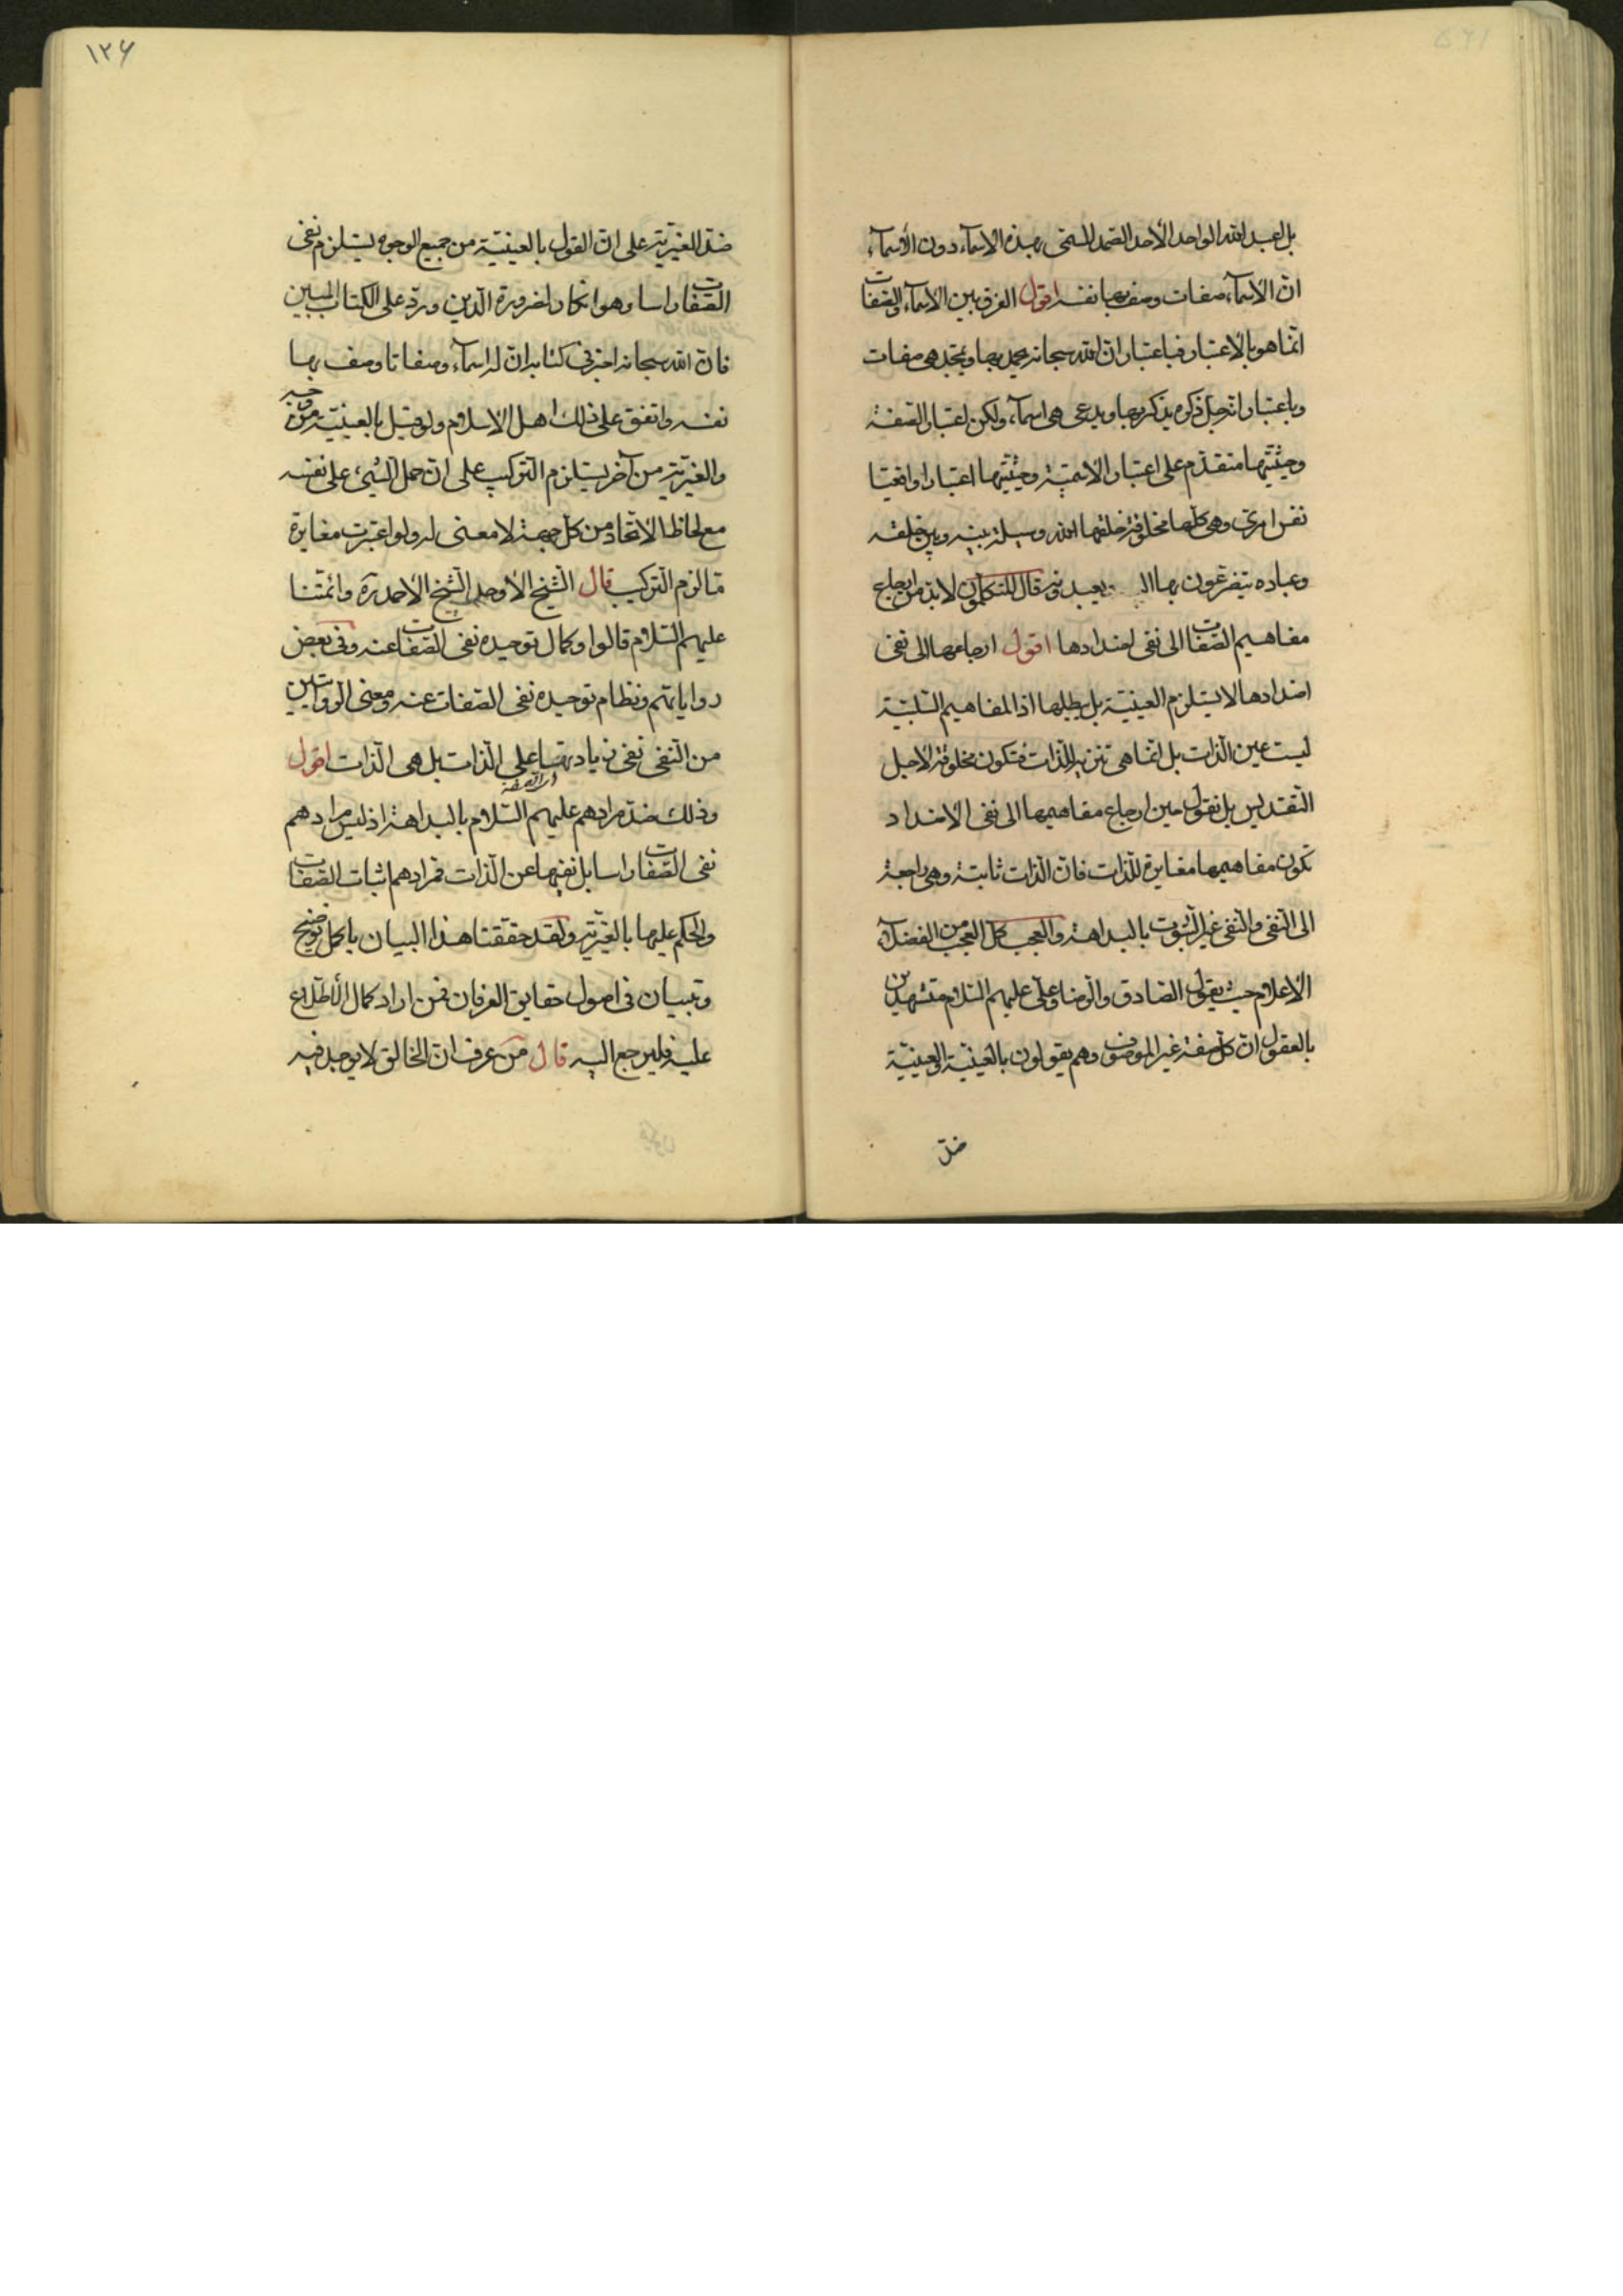 بل اعبد الله الواحد الأحد الصمد المسمى بهذه الاسماء دون الأسماء
ان الاسماء صفات وصف بها نفسه اقول الفرق بين الاسماء والصفات
انما هو بالاعتبار فباعتبار ان الله سبحانه يحمد بها ويمجد هى صفات
وباعتبار انه جل ذكره يذكر بها ويدعى هى اسماء ولكن اعتبار الصفة
وحيثيتها متقدم على اعتبار الاسمية وحيثيتها اعتبارا واقعيا
نفس امرى وهى كلها مخلوقة خلقها الله وسيلة بينه وبين خلقه
وعباده يتضرعون بها اليه ويعبدونه قال المتكلمون لابد من ارجاع
مفاهيم الصفات الى نفى اضدادها اقول ارجاعها الى نفى
اضدادها لا يستلزم العينية بل يبطلها اذ المفاهيم السلبية
ليست عين الذات بل انما هى تنزيه للذات فتكون مخلوقة لاجل
التقديس بل نقول حين ارجاع مفاهيمها الى نفى الاضداد
تكون مفاهيمها مغايرة للذات فان الذات ثابتة وهى راجعة
الى النفى والنفى غير الثبوت بالبداهة والعجب كل العجب من الفضلاء
الاعلام حيث يقول الصادق والرضا وعلى عليهم السلام مستشهدين
بالعقول ان كل صفة غير الموصوف وهم يقولون بالعينية والعينية
ضد
١٢۶
ضد الغيرية على ان القول بالعينية من جميع الوجوه يستلزم نفى
الصفات راسا وهو انكار لضرورة الدين ورد على الكتاب المبين
فان الله سبحانه اخبر فى كتابه ان له اسماء وصفاتا وصف بها
نفسه واتفق على ذلك اهل الاسلام ولو قيل بالعينية من وجه
والغيرية من آخر يستلزم التركيب على ان حمل الشىء على نفسه
مع لحاظ الاتحاد من كل جهة لا معنى له ولو اعتبرت مغايرة
ما لزم التركيب قال الشيخ الأوحد الشيخ الأحمد ره وائمتنا
عليهم السلام قالوا وكمال توحيده نفى الصفات عنه وفى بعض
رواياتهم ونظام توحيده نفى الصفات عنه ومعنى الروايتين
من النفى نفى زيادتها على الذات بل هى الذات اقول
وذلك ضد مرادهم عليهم السلام بالبداهة اذ ليس مرادهم
نفى الصفات راسا بل نفيها عن الذات فمرادهم اثبات الصفات
والحكم عليها بالغيرية ولقد حققنا هذا البيان باكمل توضيح
وتبيان فى اصول حقايق العرفان فمن اراد كمال الاطلاع
عليه فليرجع اليه قال من عرف ان الخالق لا يوجد فيه